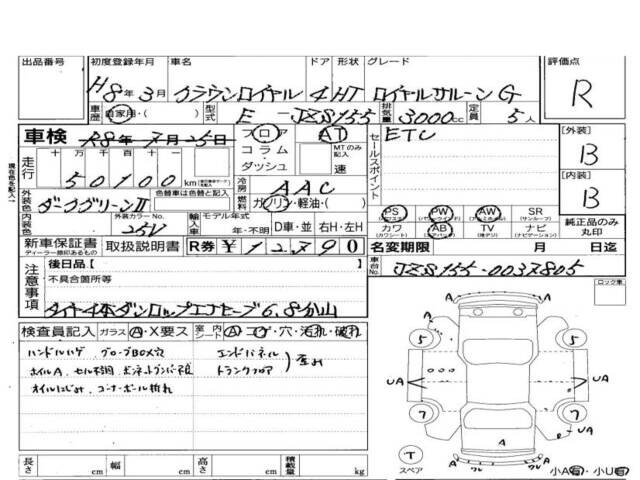 出品番号 初度登録年月 車名 ドア 形状 グレード 評価点
H8年3月 クラウンロイヤル 4 HT ロイヤルサルーンG R
車歴 自家用・( ) 型式 E-JZS155 排気量 3000cc 定員 5人
車検 R8年7月25日 フロア AT セールスポイント ETC [外装]
コラム MTのみ記入 B
走行 十万千百十 ダッシュ 速
50100 km 冷房 AAC [内装]
外装色 色替車は色替と記入 燃料 ガソリン・軽油・( ) B
ダークグリーンII PS PW AW SR 純正品のみ丸印
内装色 外装カラーNo. 25V 輸入車 モデル年式 年・不明 D車・並 右H・左H カワ AB TV ナビ
(カワシート) (地デジ) (ナビゲーション) (サンルーフ)
新車保証書 取扱説明書 R券 ¥12,890 名変期限 月 日迄
ディーラー捺印あるもの
注意事項 後日品[ ] 車台No. JZS155-0037805
不具合箇所等 ロック車
タイヤ4本ダンロップエナセーブ6.8分山
検査員記入 ガラス A・X要ス 室内シート A・コゲ・穴・汚れ・破れ
ハンドルハゲ グローブBOX穴 エンドパネル 歪み
ホイルA トランクフロア
オイルにじみ コーナーポール折れ
A A
5 5
UA UA
7 7
A
T スペア A A
小A有・小U有
長さ cm 幅 cm 高さ cm 積載量 kg
現在色を記入